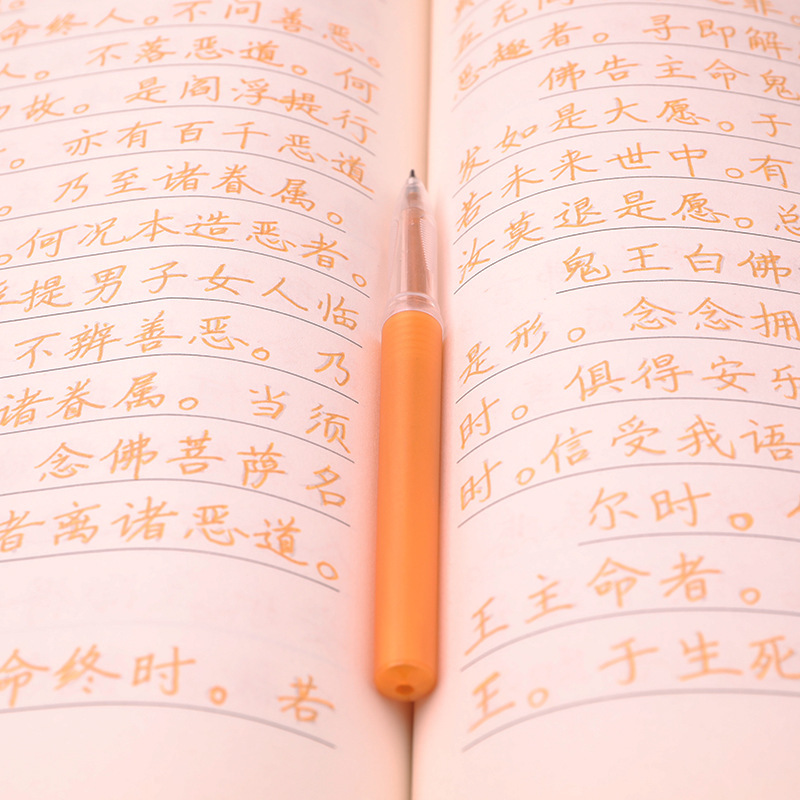 命终人。不问善恶。
人。不落恶道。何
力故。是阎浮提行
。亦有百千恶道
。乃至诸眷属。
。何况本造恶者。
浮提男子女人临
不辨善恶。乃
诸眷属。当须
念佛菩萨名
者离诸恶道。
命终时。若
趣者。寻即解
佛告主命鬼
发如是大愿。于
若未来世中。有
汝莫退是愿。总
鬼王白佛
是形。念念拥
时。俱得安乐
时。信受我语
尔时。
王主命者。
王。于生死